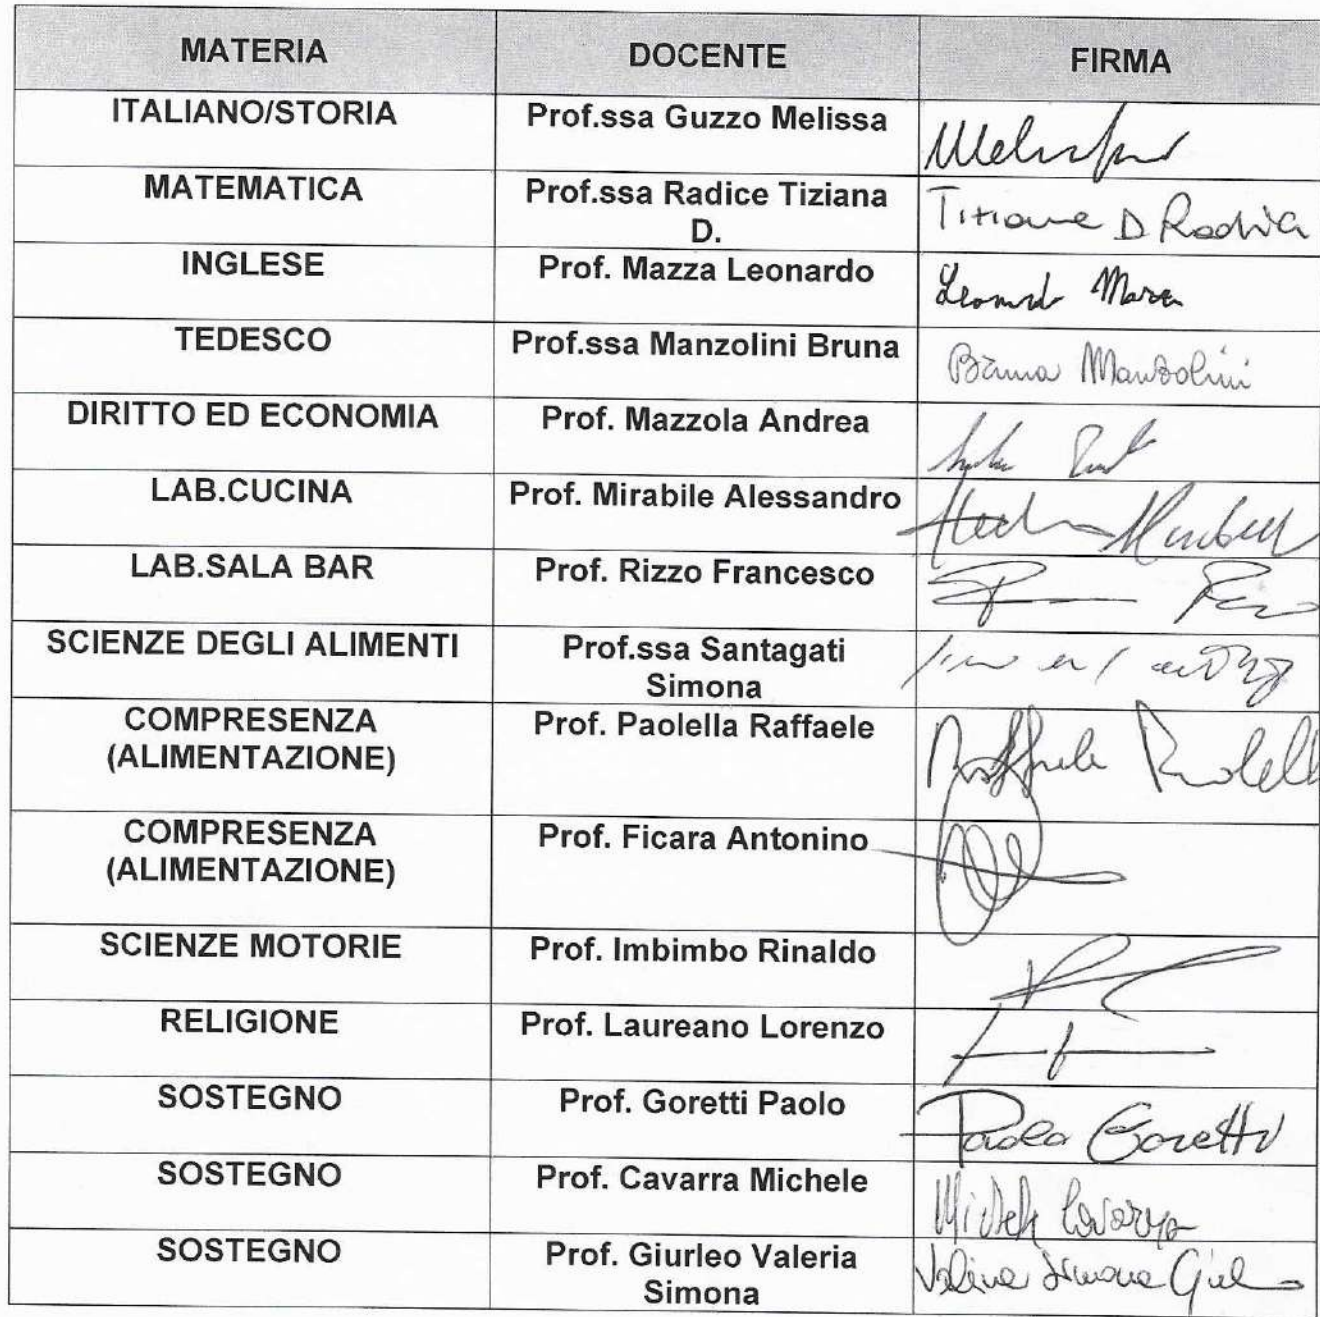 MATERIA DOCENTE FIRMA
ITALIANO/STORIA Prof.ssa Guzzo Melissa
MATEMATICA Prof.ssa Radice Tiziana Tiziana D Radice
D.
INGLESE Prof. Mazza Leonardo Leonardo Mazza
TEDESCO Prof.ssa Manzolini Bruna Bruna Manzolini
DIRITTO ED ECONOMIA Prof. Mazzola Andrea
LAB.CUCINA Prof. Mirabile Alessandro
LAB.SALA BAR Prof. Rizzo Francesco
SCIENZE DEGLI ALIMENTI Prof.ssa Santagati
Simona
COMPRESENZA Prof. Paolella Raffaele Raffaele Paolella
(ALIMENTAZIONE)
COMPRESENZA Prof. Ficara Antonino
(ALIMENTAZIONE)
SCIENZE MOTORIE Prof. Imbimbo Rinaldo
RELIGIONE Prof. Laureano Lorenzo
SOSTEGNO Prof. Goretti Paolo Paolo Goretti
SOSTEGNO Prof. Cavarra Michele Michele Cavarra
SOSTEGNO Prof. Giurleo Valeria Valeria Simona
Simona